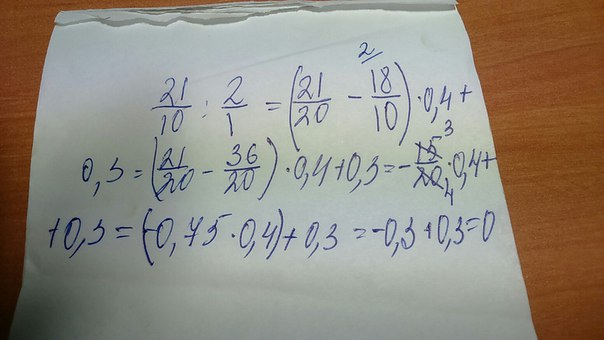 21/10 : 2/1 = (21/20 - 18/10 2) · 0,4 +
0,3 = (21/20 - 36/20) · 0,4 + 0,3 = - 15 3/20 4 · 0,4 +
+ 0,3 = (-0,75 · 0,4) + 0,3 = -0,3 + 0,3 = 0